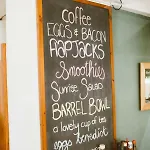 Coffee
EGGS & BACON
FLAPJACKS
Smoothies
Sunrise Salad
BARREL BOWL
a lovely cup of tea
eggs benedict